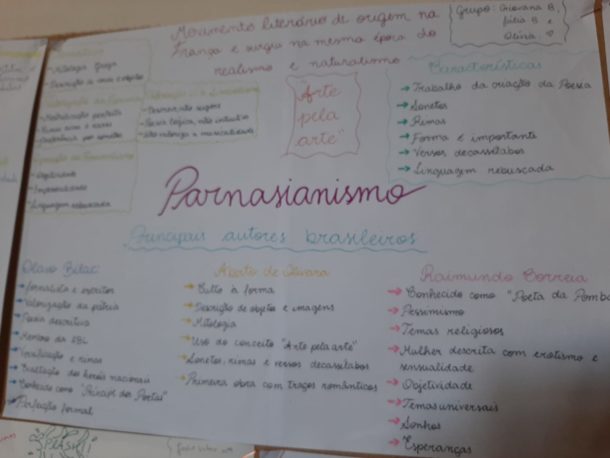 Movimento literário de origem na
França e surgiu na mesma época do
realismo e naturalismo
Grupo: Giovana B,
Júlia B e
Olívia ♡
Mitologia Grega
Metrificação perfeita
Poesia lógica, não intuitiva
Não valoriza a musicalidade
Objetividade
Impessoalidade
Linguagem rebuscada
"Arte
pela
arte"
Características
→ Trabalho da criação da Poesia
→ Sonetos
→ Rimas
→ Forma é importante
→ Versos decassílabos
→ Linguagem rebuscada
Parnasianismo
Principais autores brasileiros
Olavo Bilac:
→ Jornalista e escritor
→ Valorização da pátria
→ Poesia descritiva
→ Membro da ABL
→ Versificação e rimas
→ Exaltação dos heróis nacionais
→ Conhecido como "Príncipe dos Poetas"
→ Perfeição formal
Alberto de Oliveira
→ Culto à forma
→ Descrição de objetos e imagens
→ Mitologia
→ Uso do conceito "Arte pela arte"
→ Sonetos, rimas e versos decassílabos
→ Primeira obra com traços românticos
Raimundo Correia
→ Conhecido como "Poeta da Pomba
→ Pessimismo
→ Temas religiosos
→ Mulher descrita com erotismo e
sensualidade
→ Objetividade
→ Temas universais
→ Sonhos
→ Esperanças